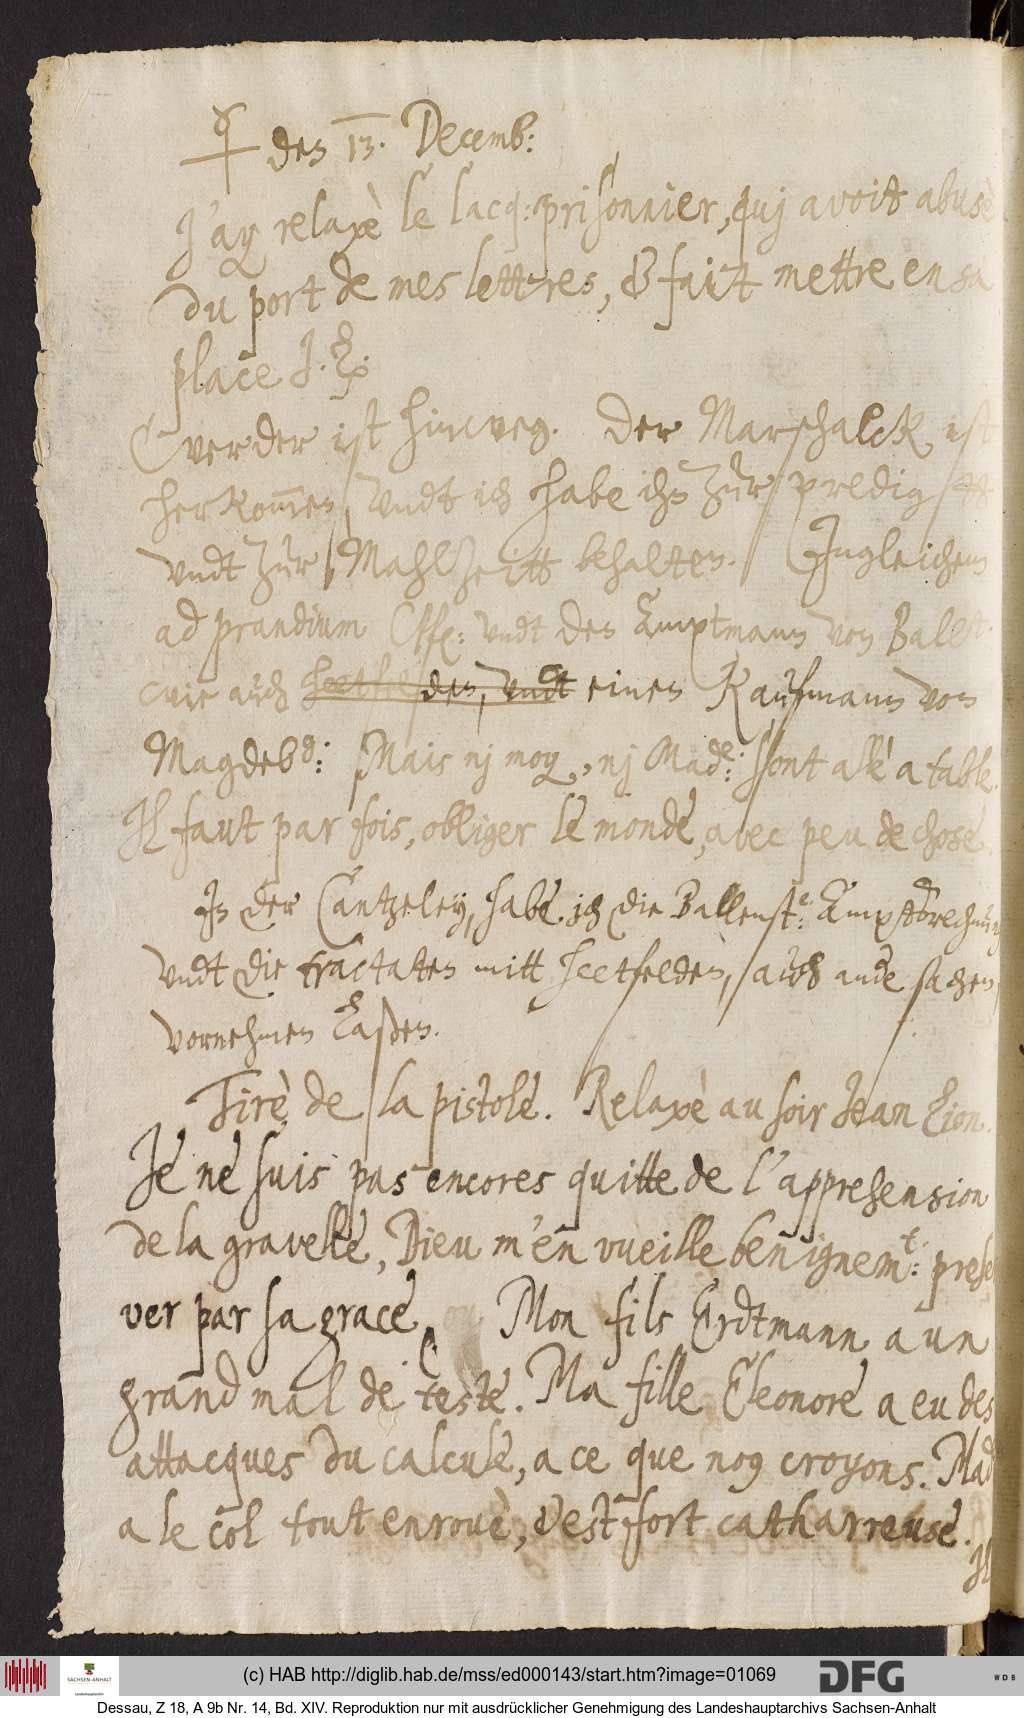 ♀ den 13. Decemb:
J'ay relaxè le lacq: prisonnier, quj avoit abusè
du port de mes lettres, & fait mettre en sa
place J. E.
Werder ist hinweg. Der Marschalck ist
herkom̄en, vndt ich habe ihn zur predigt
vndt zur Mahlzeitt behalten. Jngleichem
ad prandium vndt den Amptmann von Ballst.
wie auch einen Kaufmann von
Magdeb: Mais nj moy, nj Made: sont allè a table.
Jl faut par fois, obliger le monde, avec peu de chose.
Jn der Cantzeley, habe ich die Ballenste: Amptsrechnung
vndt die tractaten mitt heetfelden, auch andere sachen
vornehmen laßen.
Tirè de la pistole. Relaxè au soir Jean
Je ne suis pas encores quitte de l'apprehension
de la gravelle, Dieu m'en vueille benignemt: preser
ver par sa grace, Mon fils Erdtmann a un
grand mal de teste. Ma fille Eleonore a eu des
attacques du calcule, a ce que nous croyons. Mad
a le col tout enrouè, & est fort catharreuse.
Jl
(c) HAB http://diglib.hab.de/mss/ed000143/start.htm?image=01069
SACHSEN-ANHALT
DFG
WDB
Dessau, Z 18, A 9b Nr. 14, Bd. XIV. Reproduktion nur mit ausdrücklicher Genehmigung des Landeshauptarchivs Sachsen-Anhalt